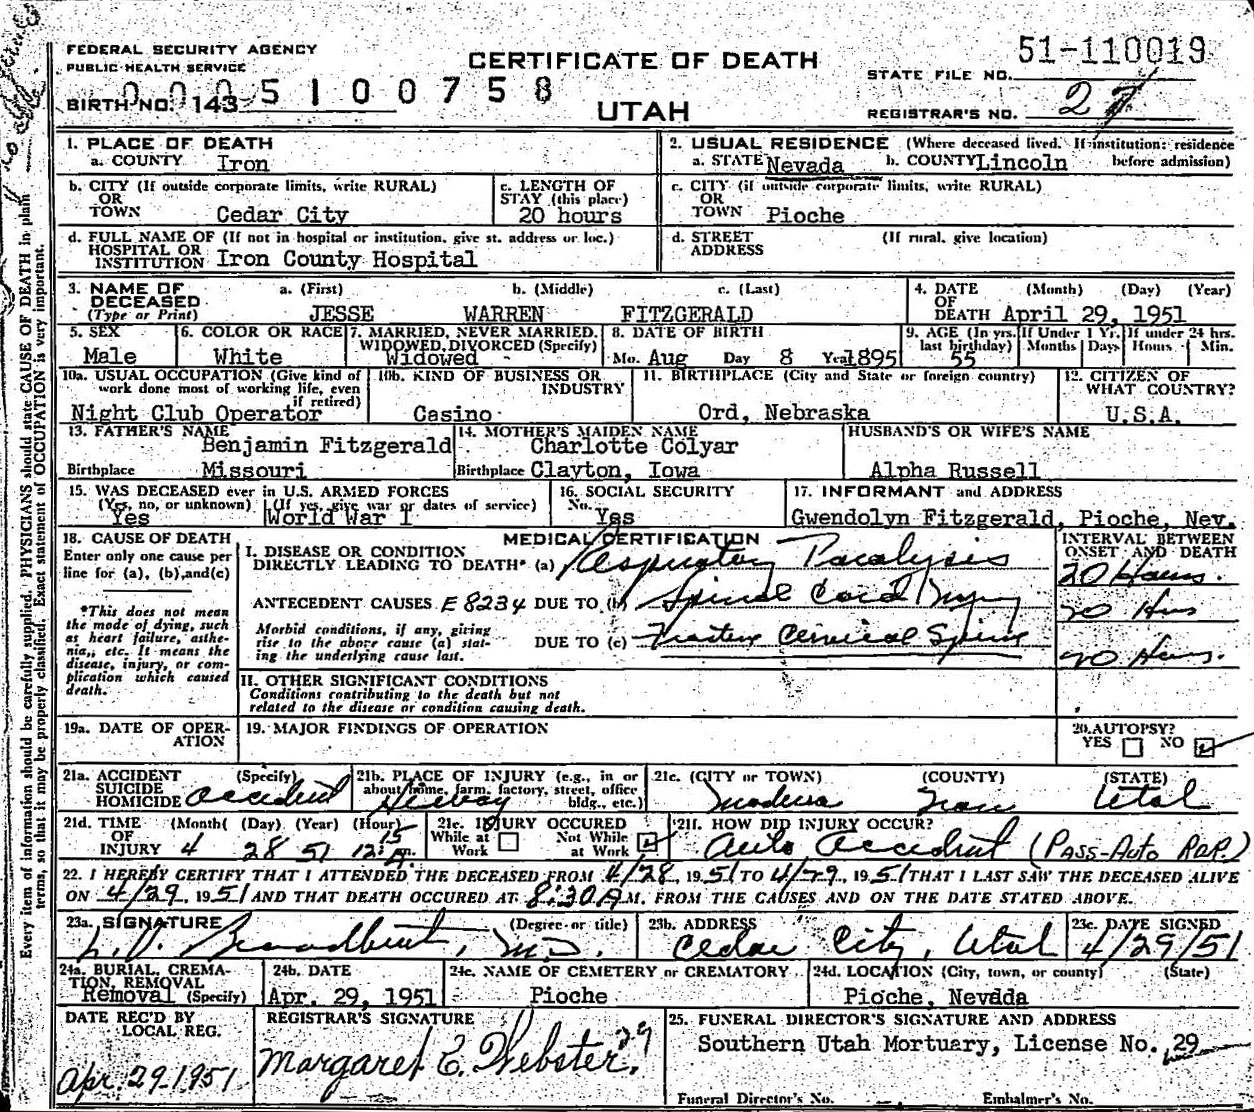 FEDERAL SECURITY AGENCY
PUBLIC HEALTH SERVICE
CERTIFICATE OF DEATH
UTAH
51-110019
STATE FILE NO.
BIRTH NO. 143
0005100758
REGISTRAR'S NO. 27
1. PLACE OF DEATH
a. COUNTY Iron
2. USUAL RESIDENCE (Where deceased lived. If institution: residence before admission)
a. STATE Nevada b. COUNTY Lincoln
b. CITY (If outside corporate limits, write RURAL)
OR
TOWN Cedar City
c. LENGTH OF
STAY (this place)
20 hours
c. CITY (if outside corporate limits, write RURAL)
OR
TOWN Pioche
d. FULL NAME OF (If not in hospital or institution, give st. address or loc.)
HOSPITAL OR
INSTITUTION Iron County Hospital
d. STREET (If rural, give location)
ADDRESS
3. NAME OF a. (First) b. (Middle) c. (Last)
DECEASED
(Type or Print) JESSE WARREN FITZGERALD
4. DATE (Month) (Day) (Year)
OF
DEATH April 29, 1951
5. SEX
Male
6. COLOR OR RACE
White
7. MARRIED, NEVER MARRIED,
WIDOWED, DIVORCED (Specify)
Widowed
8. DATE OF BIRTH
Mo. Aug Day 8 Year 1895
9. AGE (In yrs. last birthday)
55
If Under 1 Yr.
Months Days
If under 24 hrs.
Hours Min.
10a. USUAL OCCUPATION (Give kind of
work done most of working life, even
if retired)
Night Club Operator
10b. KIND OF BUSINESS OR
INDUSTRY
Casino
11. BIRTHPLACE (City and State or foreign country)
Ord, Nebraska
12. CITIZEN OF
WHAT COUNTRY?
U.S.A.
13. FATHER'S NAME
Benjamin Fitzgerald
Birthplace Missouri
14. MOTHER'S MAIDEN NAME
Charlotte Colyar
Birthplace Clayton, Iowa
HUSBAND'S OR WIFE'S NAME
Alpha Russell
15. WAS DECEASED ever in U.S. ARMED FORCES
(Yes, no, or unknown) (If yes, give war or dates of service)
Yes World War I
16. SOCIAL SECURITY
No. Yes
17. INFORMANT and ADDRESS
Gwendolyn Fitzgerald, Pioche, Nev.
18. CAUSE OF DEATH
Enter only one cause per
line for (a), (b), and (c)
*This does not mean
the mode of dying, such
as heart failure, asthe-
nia, etc. It means the
disease, injury, or com-
plication which caused
death.
MEDICAL CERTIFICATION
I. DISEASE OR CONDITION
DIRECTLY LEADING TO DEATH* (a) Respiratory Paralysis
ANTECEDENT CAUSES E8234 DUE TO (b) Spinal Cord Injury
Morbid conditions, if any, giving
rise to the above cause (a) stat-
ing the underlying cause last.
DUE TO (c) Fracture Cervical Spine
INTERVAL BETWEEN
ONSET AND DEATH
20 Hours.
20 Hrs
20 Hours.
II. OTHER SIGNIFICANT CONDITIONS
Conditions contributing to the death but not
related to the disease or condition causing death.
19a. DATE OF OPER-
ATION
19. MAJOR FINDINGS OF OPERATION
20. AUTOPSY?
YES NO
21a. ACCIDENT (Specify)
SUICIDE
HOMICIDE accident
21b. PLACE OF INJURY (e.g., in or
about home, farm, factory, street, office
bldg., etc.)
21c. (CITY or TOWN) (COUNTY) (STATE)
Modena Iron Utah
21d. TIME (Month) (Day) (Year) (Hour)
OF
INJURY 4 28 51 12:15 A.m.
21e. INJURY OCCURED
While at Work Not While at Work
21f. HOW DID INJURY OCCUR?
Auto accident (PASS-Auto ROR.)
22. I HEREBY CERTIFY THAT I ATTENDED THE DECEASED FROM 4/28, 1951 TO 4/29, 1951 THAT I LAST SAW THE DECEASED ALIVE
ON 4/29, 1951 AND THAT DEATH OCCURED AT 8:30 A M. FROM THE CAUSES AND ON THE DATE STATED ABOVE.
23a. SIGNATURE (Degree or title)
L.V. Broadbent, M.D.
23b. ADDRESS
Cedar City, Utah
23c. DATE SIGNED
4/29/51
24a. BURIAL, CREMA-
TION, REMOVAL
Removal (Specify)
24b. DATE
Apr. 29, 1951
24c. NAME OF CEMETERY or CREMATORY
Pioche
24d. LOCATION (City, town, or county) (State)
Pioche, Nevada
DATE REC'D BY
LOCAL REG.
Apr. 29-1951
REGISTRAR'S SIGNATURE
Margaret E. Webster. 29
25. FUNERAL DIRECTOR'S SIGNATURE AND ADDRESS
Southern Utah Mortuary, License No. 29
Funeral Director's No. Embalmer's No.
Every item of information should be carefully supplied. PHYSICIANS should state CAUSE OF DEATH in plain
terms, so that it may be properly classified. Exact statement of OCCUPATION is very important.